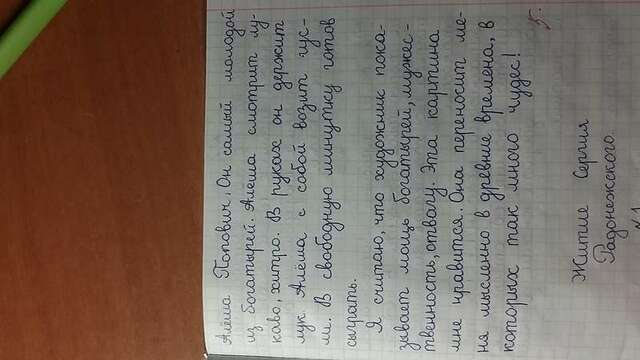 Алёша Попович. Он самый молодой
из богатырей. Алеша смотрит лу-
каво, хитро. В руках он держит
лук. Алёша с собой возит гус-
ли. В свободную минутку готов
сыграть.
Я считаю, что художник пока-
зывает мощь богатырей, мужес-
твенность, отвагу. Эта картина
мне нравится. Она переносит ме-
ня мысленно в древние времена, в
которых так много чудес!
5.
Житие Сергия
Радонежского.
№1